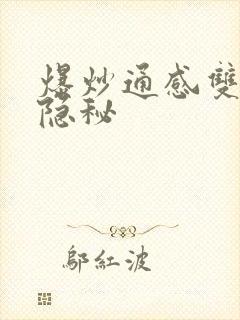 爆炒通感雙
隐秘
鄔紅波